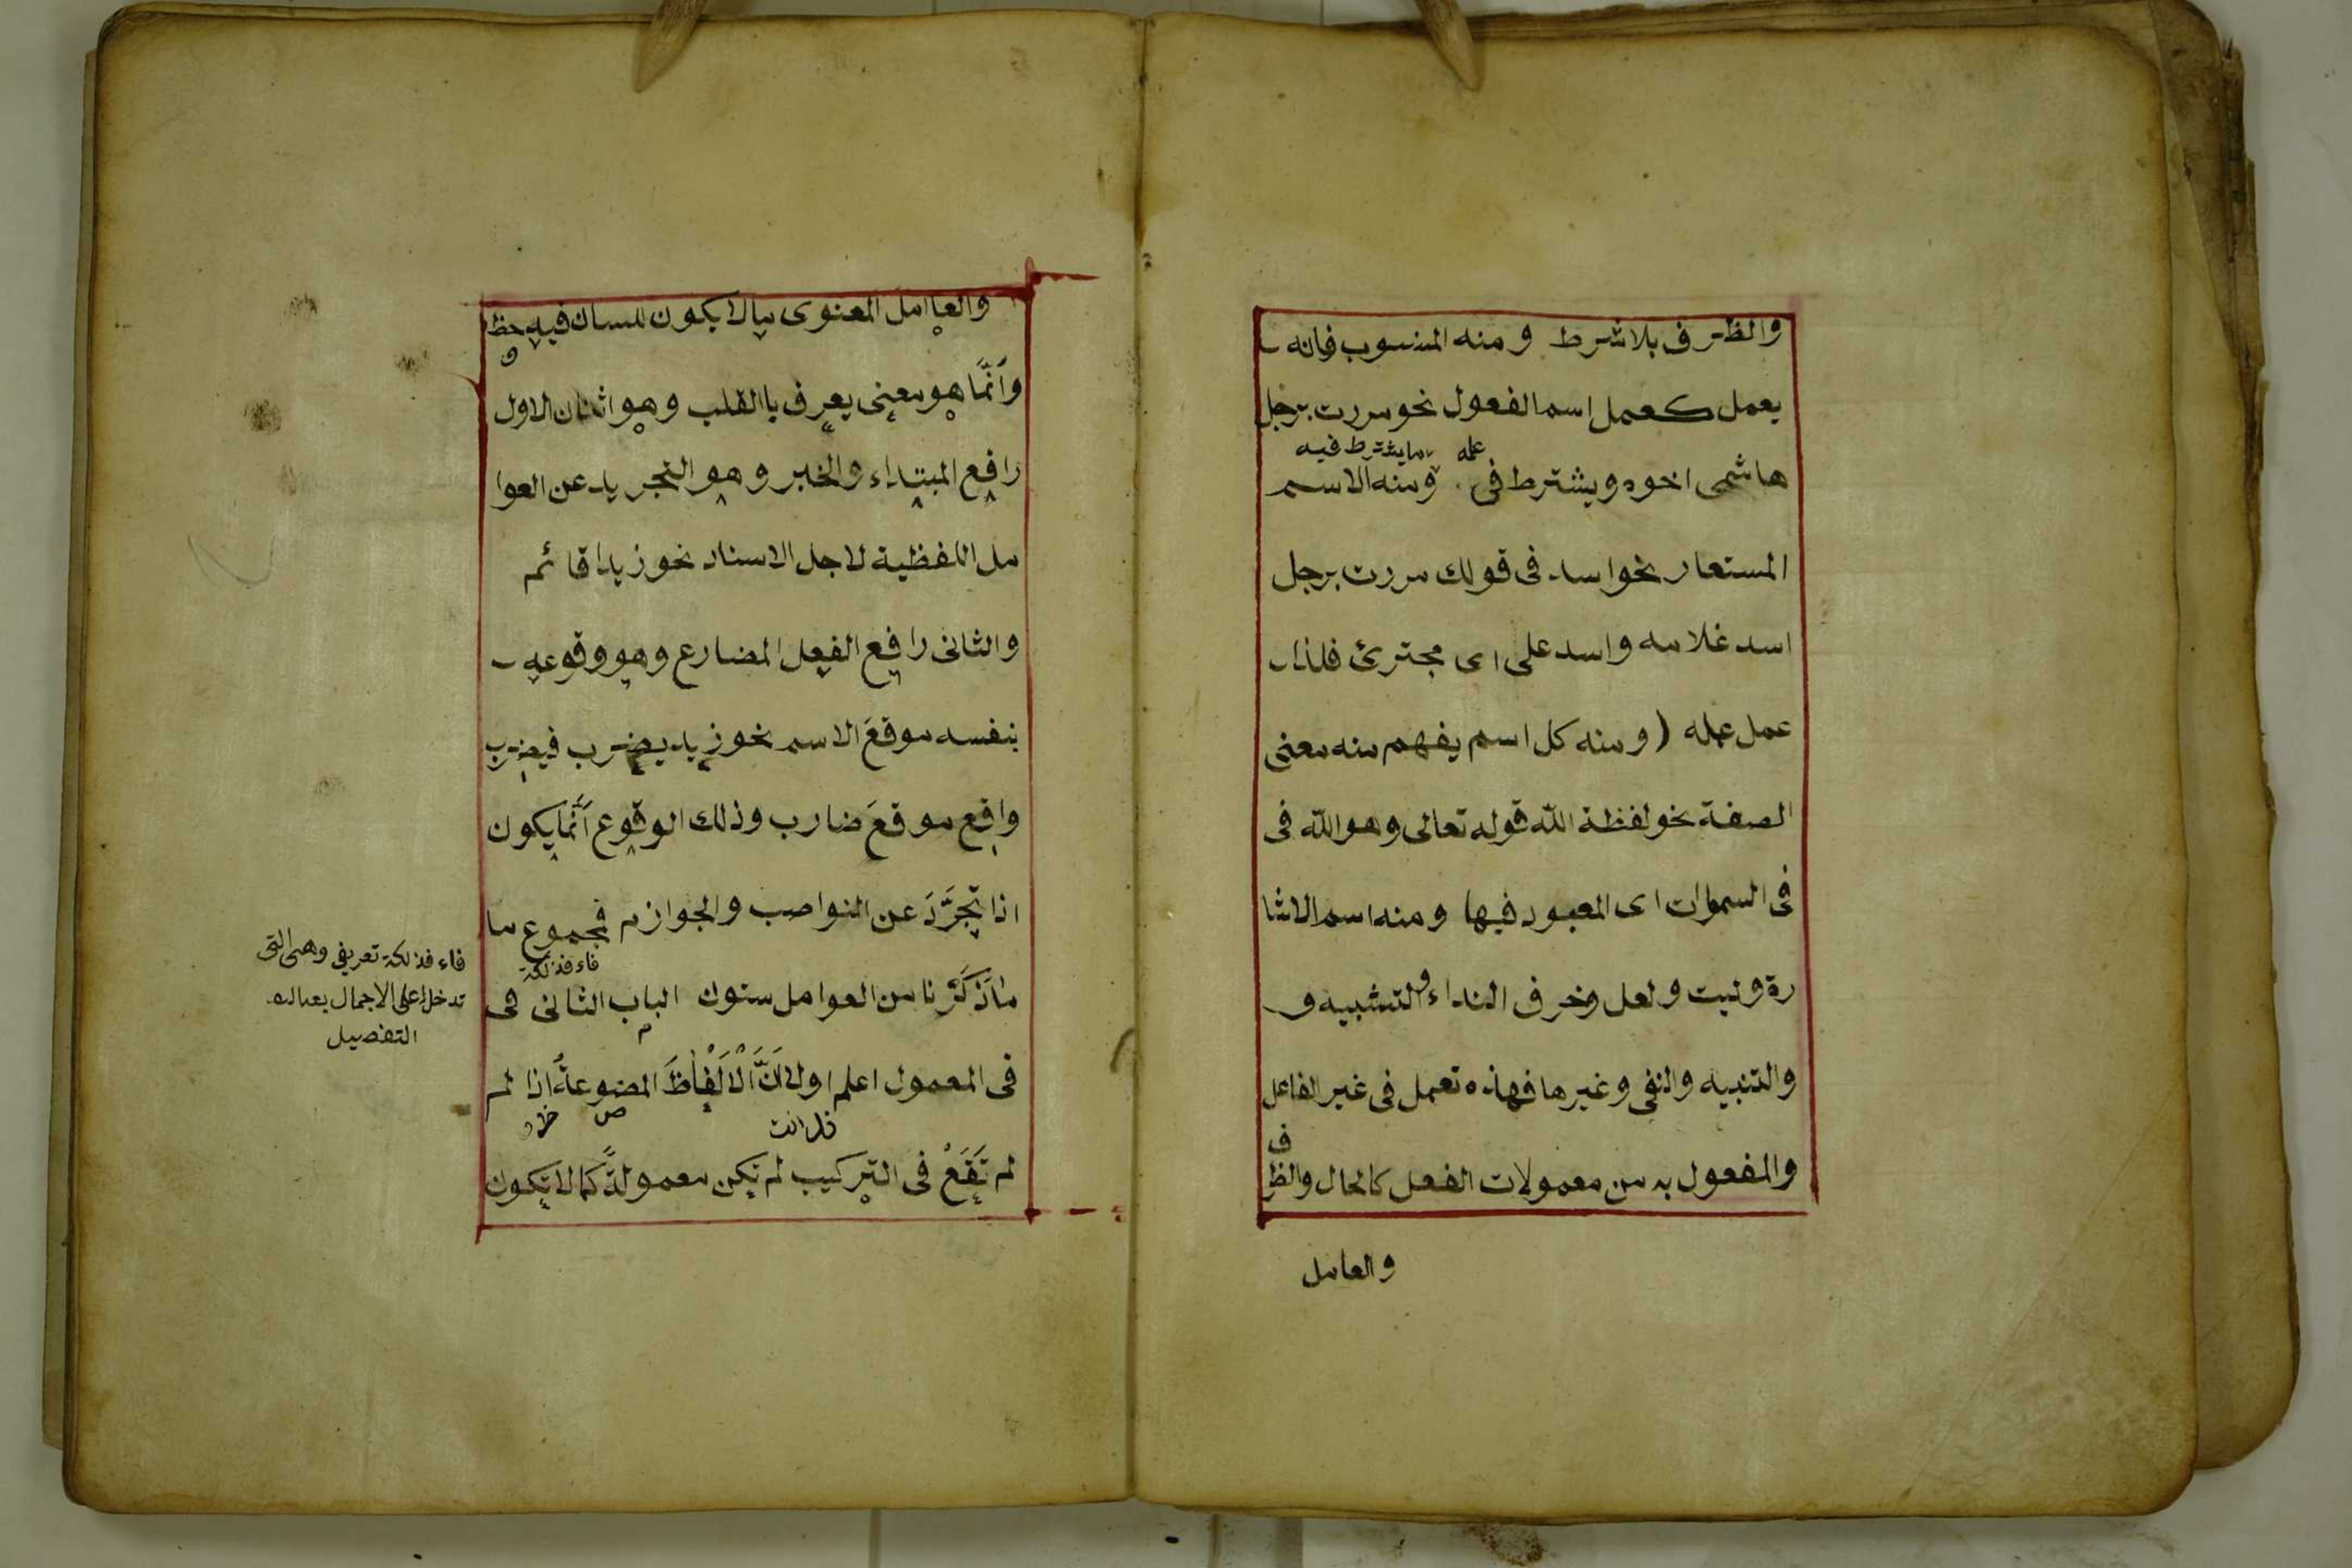 والظرف بلا شرط ومنه المنسوب فانه
يعمل كعمل اسم الفعول نحو مررت برجل
عمله ما يشترط فيه
هاشمى اخوه ويشترط فى ومنه الاسم
المستعار نحو اسد فى قولك مررت برجل
اسد غلامه واسد على اى مجترئ فلذا
عمل عمله ( ومنه كل اسم يفهم منه معنى
الصفة نحو لفظة الله قوله تعالى وهو الله فى
فى السموات اى المعبود فيها ومنه اسم الاشا
رة وليت ولعل وحرف النداء والتشبيه و
والتنبيه والنفى وغيرها فهذه تعمل فى غير الفاعل
ف
والمفعول به من معمولات الفعل كالحال والظر
والعامل
والعاامل المعنوى مالا يكون للسان فيه حظ
و
وَاَنَّمَا هو معنى يعرف باالقلب وهو اثنان الاول
رافع المبتداء والخبر وهو التجريد عن العوا
مل اللفظية لاجل الاسناد نحو زيدا قائم
والثانى رافع الفعل المضارع وهو وقوعه
بنفسه موقعَ الاسم نحو زيد يضرب فيضرب
واقع موقعَ ضارب وذلك الوقوع اَنَّمَا يكون
اذا تجرَّدَ عن النواصب والجوازم فمجموع ما
فاء فذلكة
ما ذَكَرْنا من العوامل ستون الباب الثانى فى
فى المعمول اعلم اولا اَنَّ الْاَلْفَاظَ المضوعةُ اذا لم
لم تَقَعْ فى التركيب لم تكن معمولةً كما لا تكون
فاء فذلكة تعريفى وهى التى
تدخل على الاجمال بعد
التفصيل